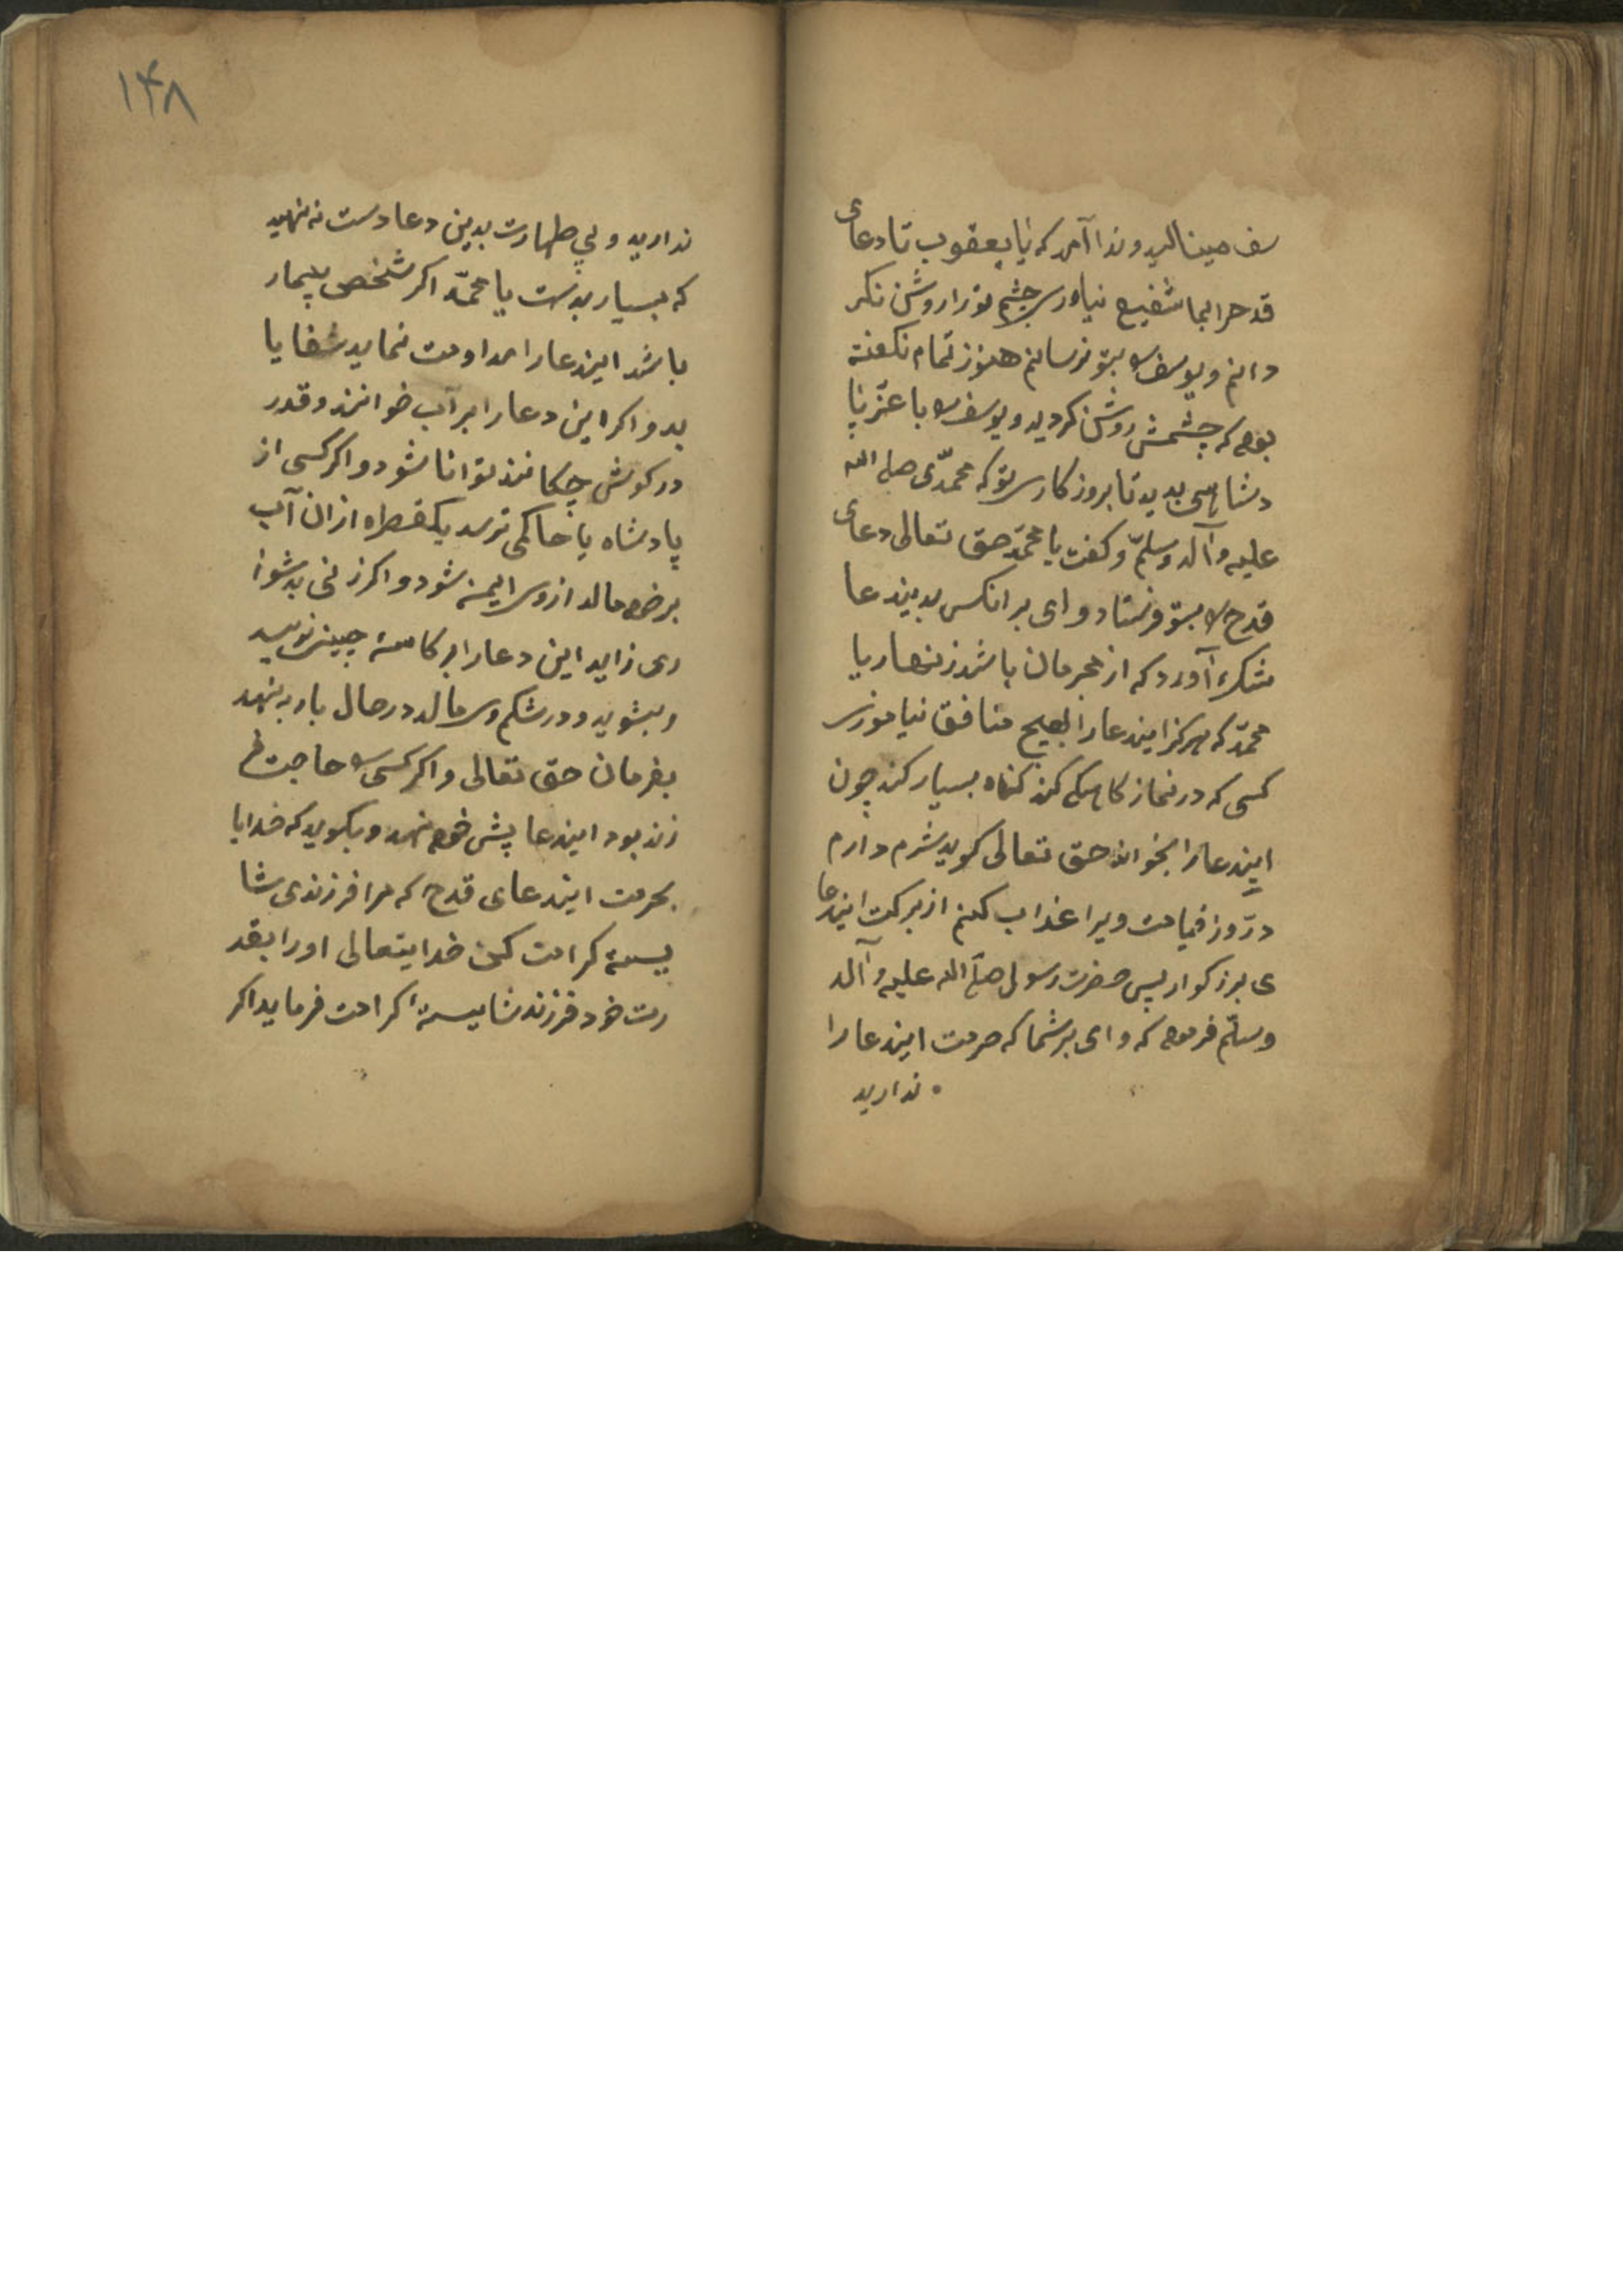 سف مینالید و ندا آمد که یا یعقوب تا دعای
قدح را بما شفیع نیاوری چشم تو را روشن نکر
دانم و یوسف را بتو نرسانم هنوز تمام نکفته
بود که چشمش روشن کردید و یوسف را با عز
دشاهی بدید تا بروز کار تو که محمدی صلی الله
علیه وآله وسلم و کفت یا محمد حق تعالی دعای
قدح را بتو فرستاد و ای بر انکس بدیندعا
شک آورد که از مجرمان باشد زنهار یا
محمد که هرکز ایندعا را بهیچ منافق نیاموزی
کسی که در نماز کاهلی کند کناه بسیار کند چون
ایندعا را بخواند حق تعالی کوید شرم دارم
در روز قیامت ویرا عذاب کنم از برکت ایندعا
ی بزرکوار پس حضرت رسول صلی الله علیه وآله
وسلم فرمود که وای بر شما که حرمت ایندعا را
ندارید
۱۴۸
ندارید و بی طهارت بدین دعا دست نه نهید
که بسیار بدست یا محمد اکر شخصی بیمار
باشد ایندعا را مداومت نماید شفا یا
بد و اکر این دعا را بر آب خوانند و قدر
در کوشش چکانند توانا شود و اکر کسی از
پادشاه یا حاکمی ترسد یکقطره از ان آب
بر خود مالد از وی ایمن شود و اکر زنی بدشوا
ری زاید این دعا را بر کاسه چینی نویسد
و بشوید و در شکم وی مالد در حال بار بنهد
بفرمان حق تعالی و اکر کسی را حاجت فر
زند بود ایندعا پیش خود نهد و بکوید که خدایا
بحرمت ایندعای قدح که مرا فرزندی شا
یسته کرامت کن خدایتعالی او را بقد
رت خود فرزند شایسته کرامت فرماید اکر